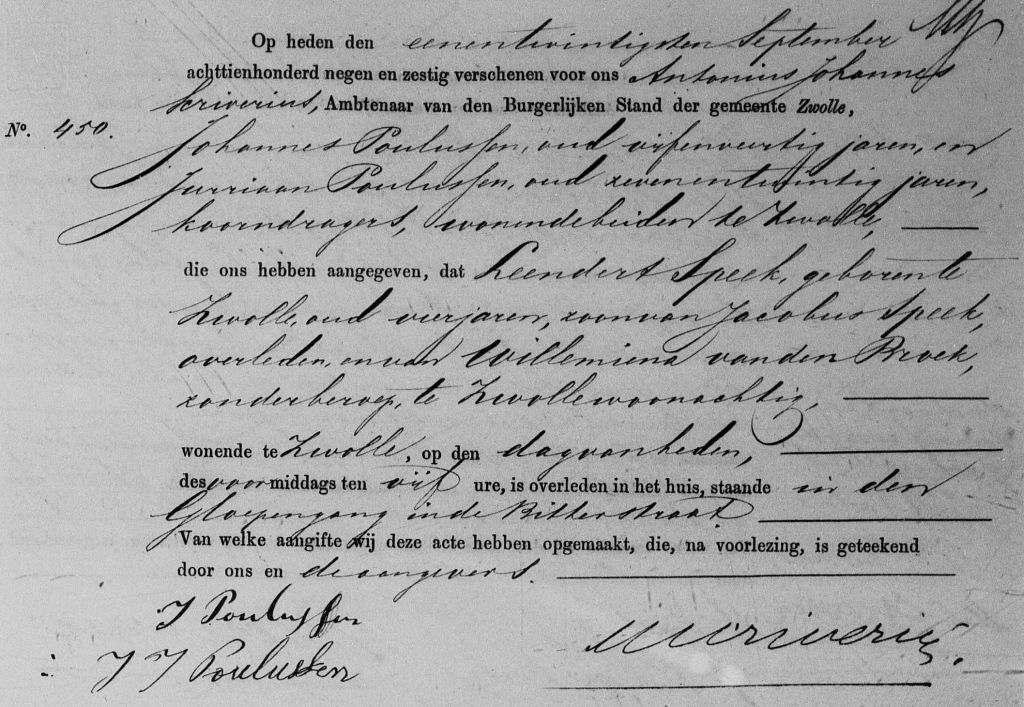 Op heden den eenentwintigsten September
achttienhonderd negen en zestig verschenen voor ons Antonius Johannes
Scriverius, Ambtenaar van den Burgerlijken Stand der gemeente Zwolle,
No. 450.
Johannes Poulussen, oud vijfenveertig jaren, en
Jurriaan Poulussen, oud zevenentwintig jaren,
koorndragers, wonende beiden te Zwolle,
die ons hebben aangegeven, dat Leendert Speek, geboren te
Zwolle, oud vier jaren, zoon van Jacobus Speek,
overleden, en van Willemiena van den Broek,
zonder beroep, te Zwolle woonachtig,
wonende te Zwolle, op den dag van heden,
des voormiddags ten vijf ure, is overleden in het huis, staande in den
Gloepengang in de Bitterstraat
Van welke aangifte wij deze acte hebben opgemaakt, die, na voorlezing, is geteekend
door ons en de aangevers.
J Poulussen
J J Poulussen
Scriverius.